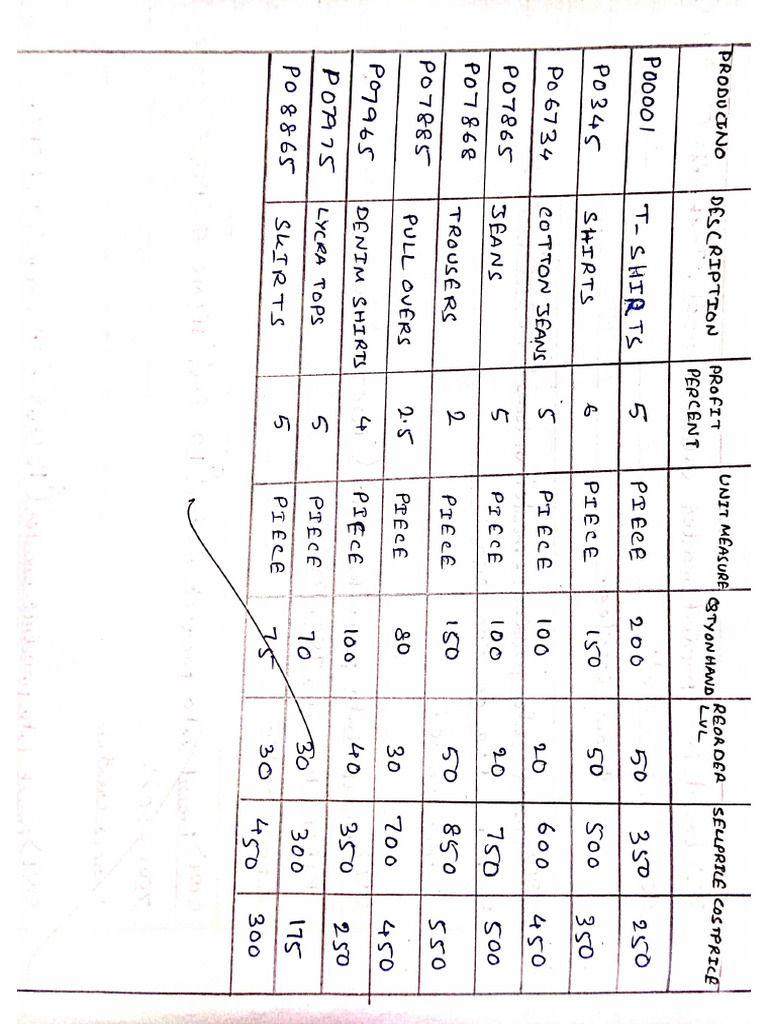 PRODUCINO DESCRIPTION PROFIT PERCENT UNIT MEASURE QTYONHAND REORDER LVL SELLPRICE COSTPRICE
P00001 T-SHIRTS 5 PIECE 200 50 350 250
P0345 SHIRTS 6 PIECE 150 50 500 350
P06734 COTTON JEANS 5 PIECE 100 20 600 450
P07865 JEANS 5 PIECE 100 20 750 500
P07868 TROUSERS 2 PIECE 150 50 850 550
P07885 PULL OVERS 2.5 PIECE 80 30 700 450
P07965 DENIM SHIRTS 4 PIECE 100 40 350 250
P07975 LYCRA TOPS 5 PIECE 70 30 300 175
P08865 SKIRTS 5 PIECE 75 30 450 300